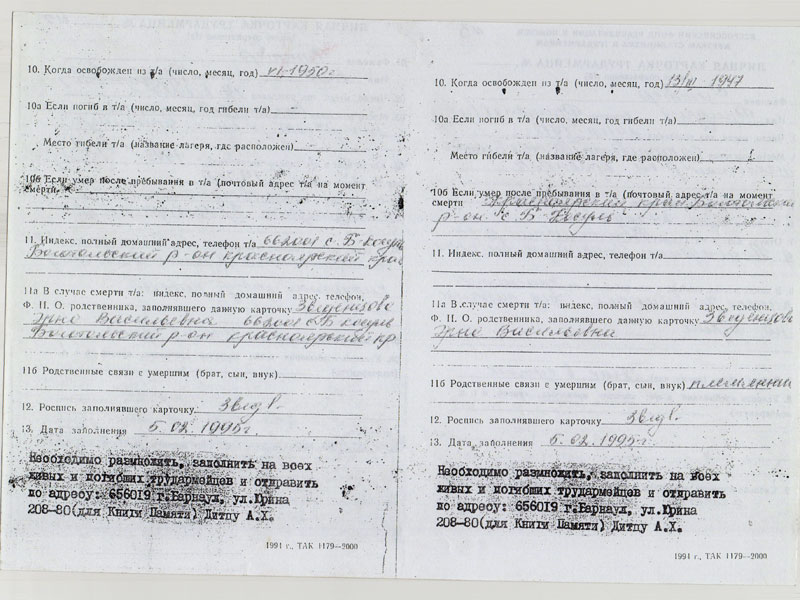 10. Когда освобожден из т/а (число, месяц, год) VI-1950 г
10а Если погиб в т/а (число, месяц, год гибели т/а)
Место гибели т/а (название лагеря, где расположен)
10б Если умер после пребывания в т/а (почтовый адрес т/а на момент
смерти
11. Индекс, полный домашний адрес, телефон т/а 662001 с. Б-Косуль
Боготольский р-он красноярский край
11а В случае смерти т/а: индекс, полный домашний адрес, телефон,
Ф. И. О. родственника, заполнявшего данную карточку
Васильевна 662001 с Б Косуль
Боготольский р-он красноярский кр
11б Родственные связи с умершим (брат, сын, внук)
12. Роспись заполнявшего карточку
13. Дата заполнения 5.02.1995г
Необходимо размножить, заполнить на всех
живых и погибших трудармейцев и отправить
по адресу: 656019 г.Барнаул, ул.Юрина
208-80(для Книги Памяти) Дитцу А.Х.
1991 г., ТАК 1179—2000
10. Когда освобожден из т/а (число, месяц, год) 13/III-1947
10а Если погиб в т/а (число, месяц, год гибели т/а)
Место гибели т/а (название лагеря, где расположен)
10б Если умер после пребывания в т/а (почтовый адрес т/а на момент
смерти Красноярский край Боготольский
р-он. с Б-Косуль
11. Индекс, полный домашний адрес, телефон т/а
11а В случае смерти т/а: индекс, полный домашний адрес, телефон,
Ф. И. О. родственника, заполнявшего данную карточку
Васильевна
11б Родственные связи с умершим (брат, сын, внук) племянни
12. Роспись заполнявшего карточку
13. Дата заполнения 5.02.1995г
Необходимо размножить, заполнить на всех
живых и погибших трудармейцев и отправить
по адресу: 656019 г.Барнаул, ул.Юрина
208-80(для Книги Памяти) Дитцу А.Х.
1991 г., ТАК 1179—2000